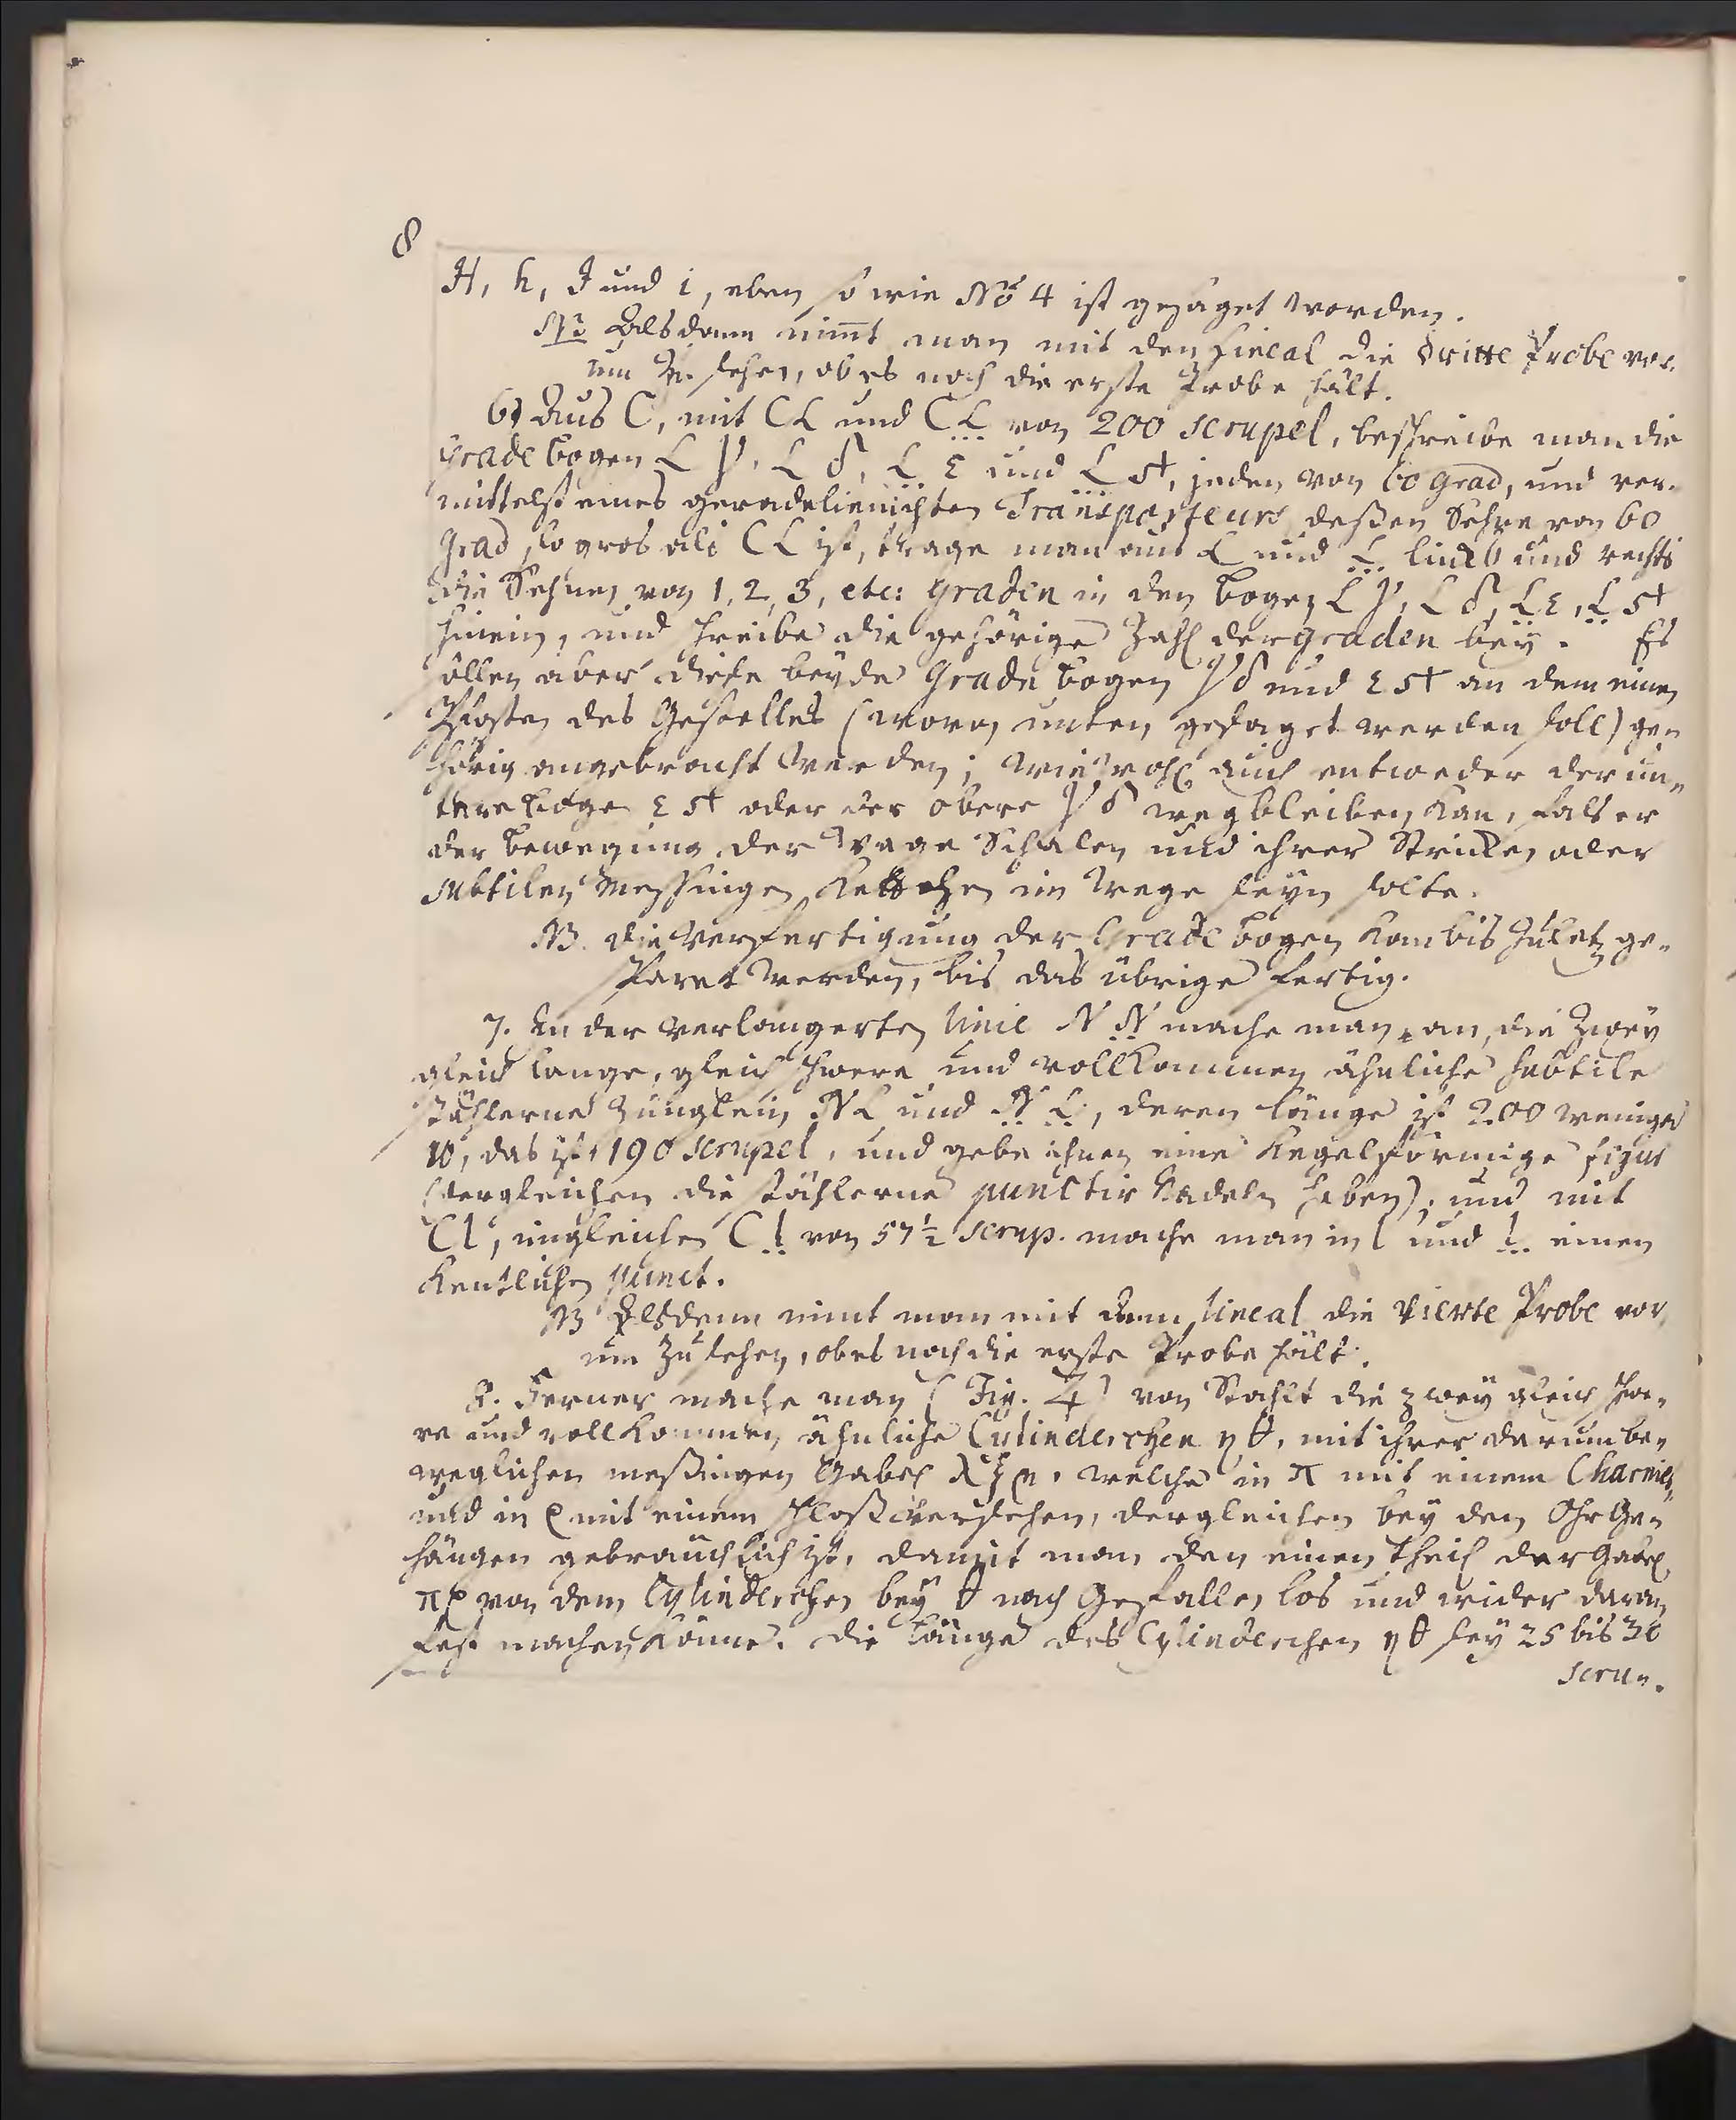 8
H, h, I und i, eben so wie No 4 ist gesaget worden.
NB Alsdann nimt man mit den Lineal die dritte Probe vor,
um zu sehen, ob es noch die erste Probe hält.
6) Aus C, mit CL und CL̤ von 200 scrupel, beschreibe man die
Grade bogen L γ, L δ, L̤ ε und L̤ st, jeden von 60 Grad, und ver-
mittelst eines geradelienichten Transporteurs deßen Sehne von 60
Grad so gros als CL ist, trage man aus L und L̤ lincks und rechts
die Sehnen von 1, 2, 3, etc: Graden in den bogen L γ, L δ, L̤ ε, L̤ st
hinein, und schreibe die gehörige Zahl der graden bey. Es
sollen aber diese beyde Grade bogen γδ und ε st an dem einen
Pfosten des Gestelles (wovon unten gesaget werden soll) ge-
hörig angebracht werden; wiewohl auch entweder der un-
tere boge ε st oder der obere γ δ wegbleiben kan, fals er
der bewegung der Wage Schalen und ihrer Stricken oder
subtilen Messingen Kettchen im Wege seyn solte.
NB. die Verfertigung der Grade bogen kan bis zuletz ge-
sparet werden, bis das übrige fertig.
7. An der verlangerten linie N N̤ mache man an, die zwey
gleich lange, gleich schwere und vollkommen ähnliche subtile
stählerne Zünglein NL und N̤ L̤, deren länge ist 200 weniger
10, das ist, 190 scrupel, und gebe ihnen eine Kegelförmige figur
(dergleichen die stählerne punctir Nadeln haben); und mit
Cl, ingleichen C l̤ von 57½ scrup. mache man in l und l̤ einen
Kentlichen punct.
NB Alsdenn nimt man mit dem lineal die vierte Probe vor,
um zu sehen, ob es noch die erste Probe hält.
8. Ferner mache man (Fig. 4) von Stahl die zwey gleich schwe-
re und vollkommen ähnliche Cylinderchen η θ, mit ihrer darum be-
weglichen meßingen Gabel λξμ, welche in π mit einem Charnier,
und in ρ mit einem schloß versehen, dergleichen bey den Ohr Ge-
hängen gebräuchlich ist, damit man den einen Theil der Gabel
πρ von dem Cylinderchen bey θ nach Gefallen los und wider daran
fest machen könne. die länge des Cylinderchen η θ sey 25 bis 30
scru-